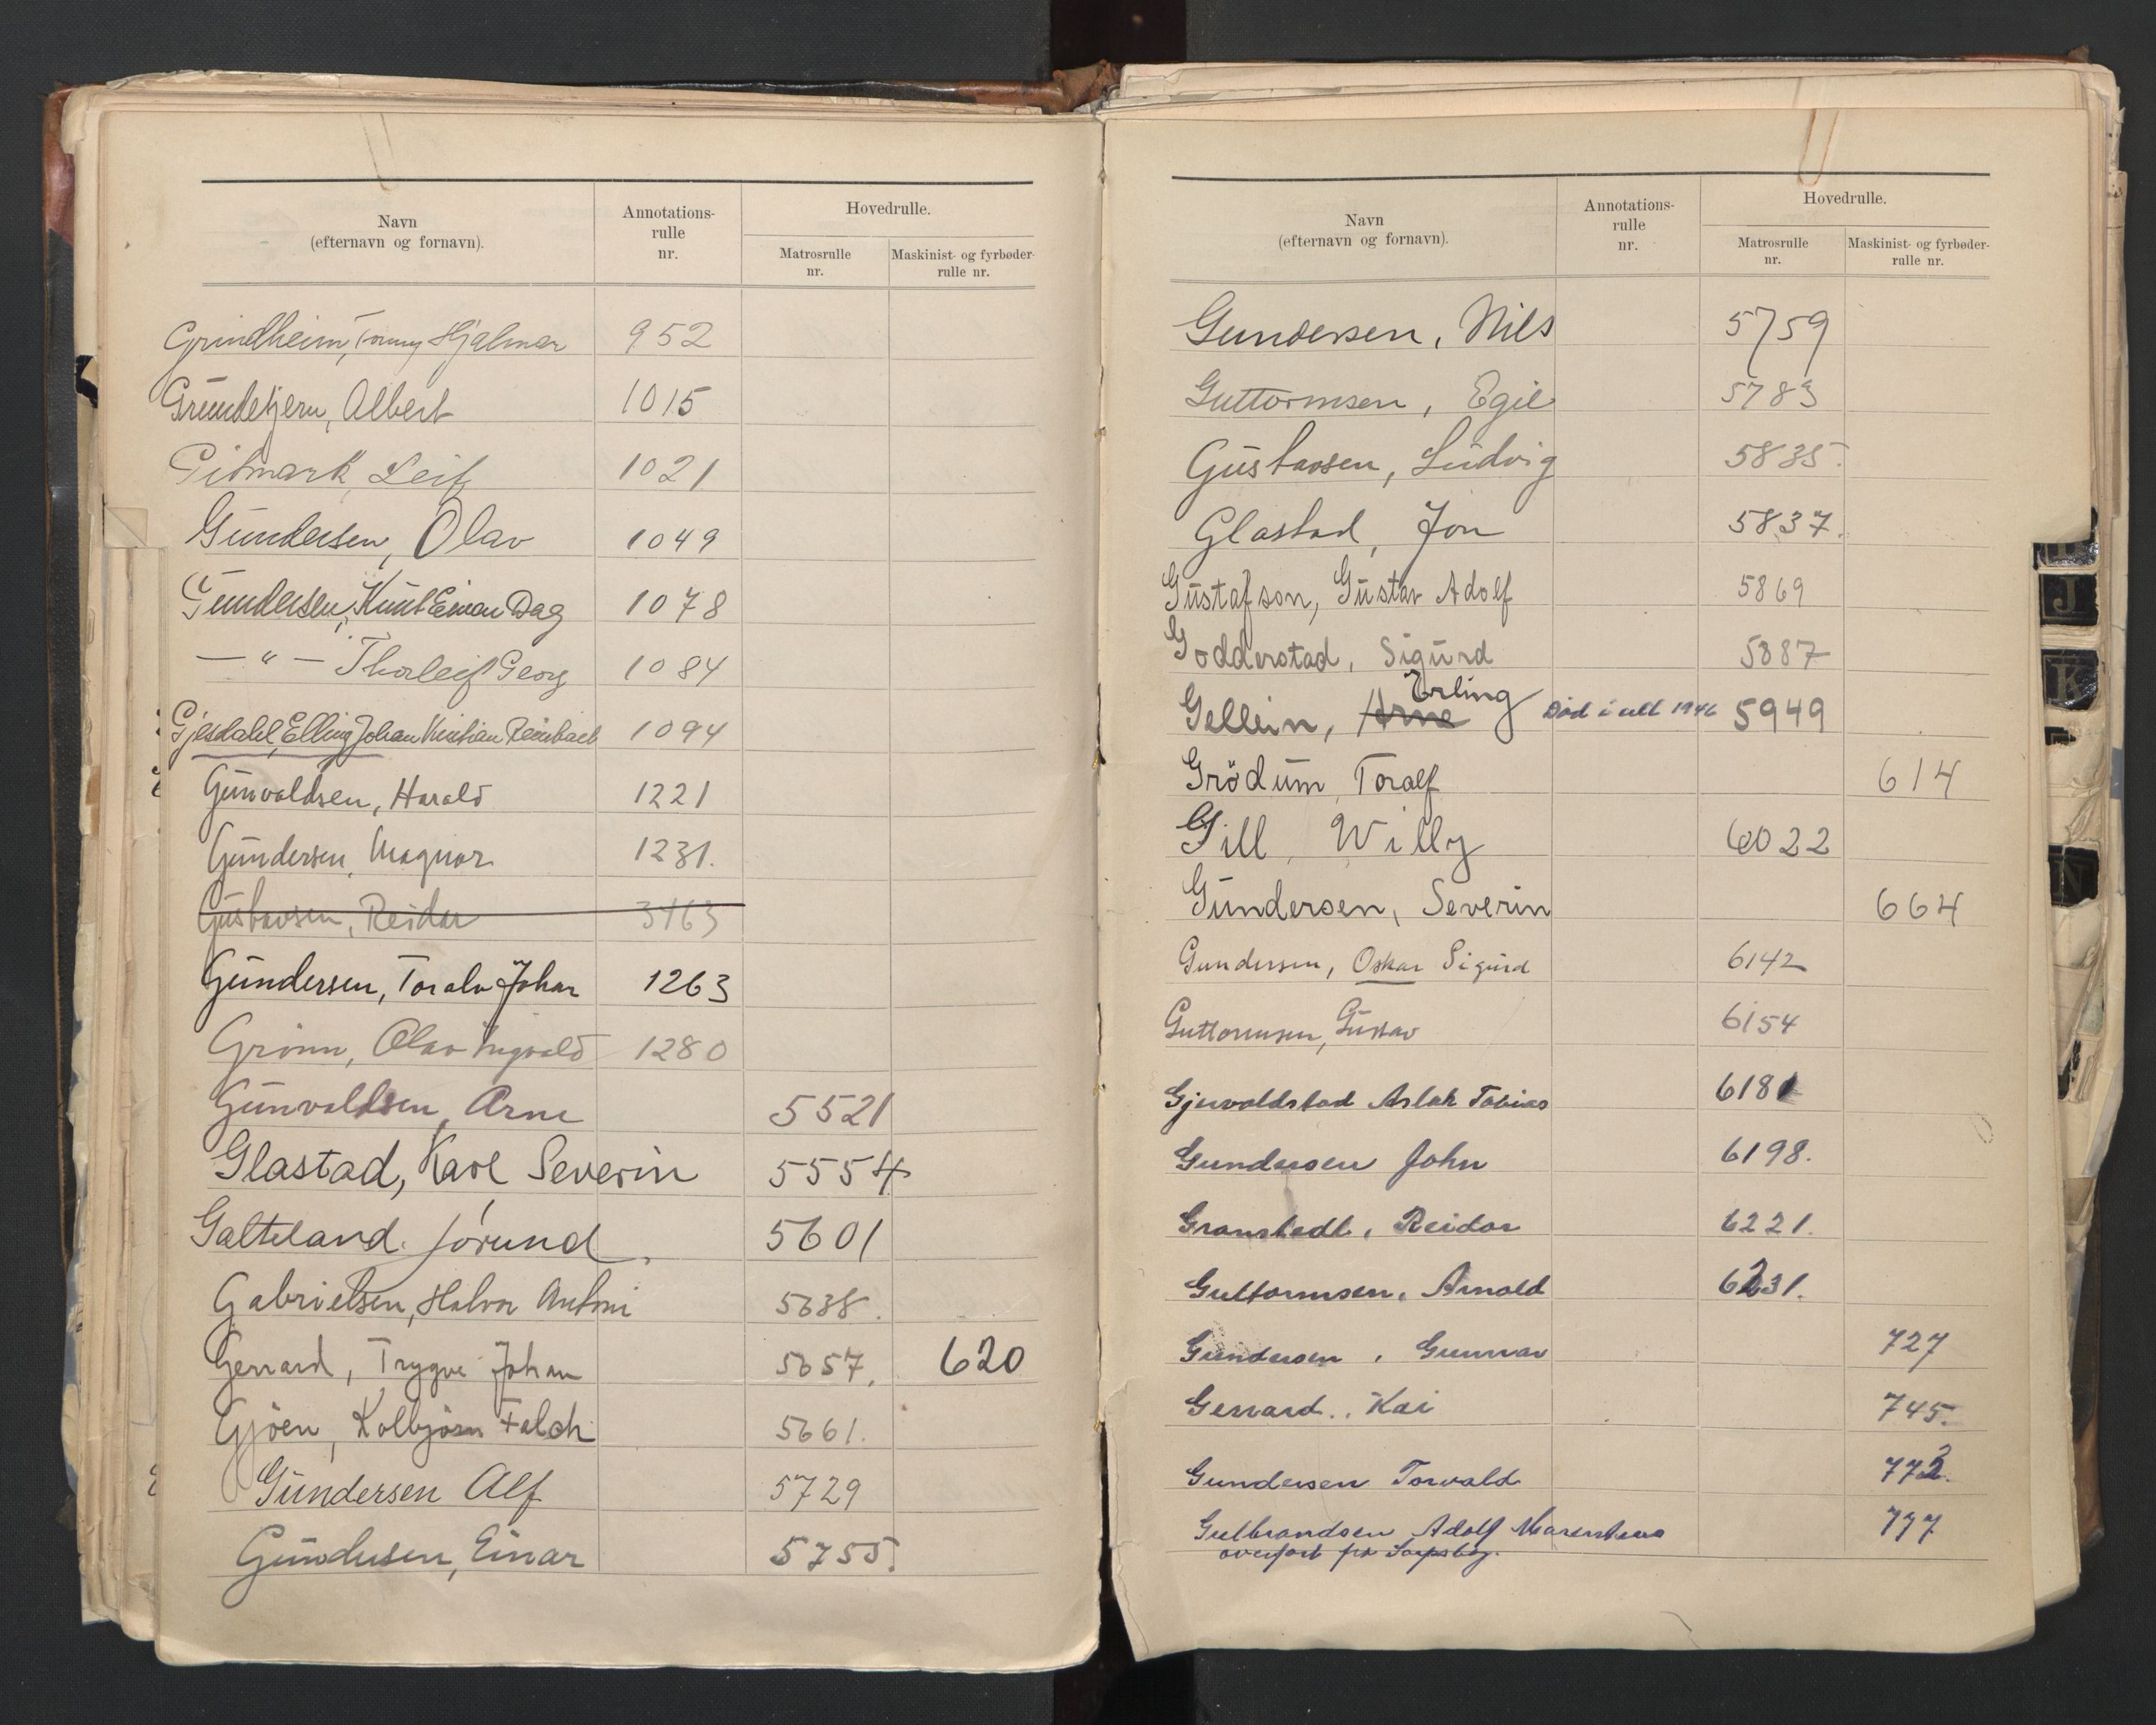 Navn
(efternavn og fornavn).
Annotations-
rulle
nr.
Hovedrulle.
Matrosrulle
nr.
Maskinist- og fyrbøder-
rulle nr.
Grindheim, Tommy Hjalmar 952
Grundetjern, Albert 1015
Gitmark, Leif 1021
Gundersen, Olav 1049
Gundersen, Knut Einar Dag 1078
— " — Thorleif Georg 1084
Gjesdahl, Elling Johan Kristian Reinbach 1094
Gunvaldsen, Harald 1221
Gundersen, Magnar 1231.
Gustavsen, Reidar 3163
Gundersen, Toralv Johan 1263
Grönn, Olav Ingvald 1280
Gunvaldsen, Arne 5521
Glastad, Karl Severin 5554
Galteland. Jörund 5601
Gabrielsen, Halvor Antoni 5638.
Gerrard, Trygve Johan 5657. 620
Gjöen, Kolbjörn Falch 5661.
Gundersen Alf 5729
Gundersen, Einar 5755.
Navn
(efternavn og fornavn).
Annotations-
rulle
nr.
Hovedrulle.
Matrosrulle
nr.
Maskinist- og fyrbøder-
rulle nr.
Gundersen, Nils 5759
Guttormsen, Egil 5783
Gustavsen, Ludvig 5835.
Glastad, Jon 5837.
Gustafson, Gustav Adolf 5869
Godderstad, Sigurd 5887
Erling
Gellein, Arne Död i utl 1946 5949
Grödum, Toralf 614
Gill, Willy 6022
Gundersen, Severin 664
Gundersen, Oskar Sigurd 6142
Guttormsen, Gustav 6154
Gjuvoldstad Aslak Tobias 6181
Gundersen John 6198.
Granstedt, Reidar 6221.
Guttormsen, Arnold 6231.
Gundersen, Gunnar 727
Gerrard., Kai 745.
Gundersen Torvald 772.
Gulbrandsen Adolf 777
overført fra Sarpsbg.
J
K
N